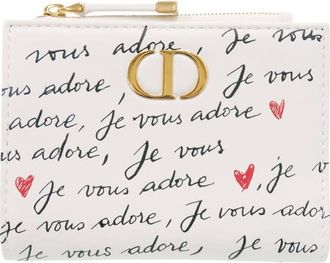 vous adore, Je
vous adore, CD Je vous
adore, Je vous adore,
adore, Je vous
Je vous adore , je
Je vous adore, Je vous
vous adore, Je vous adore